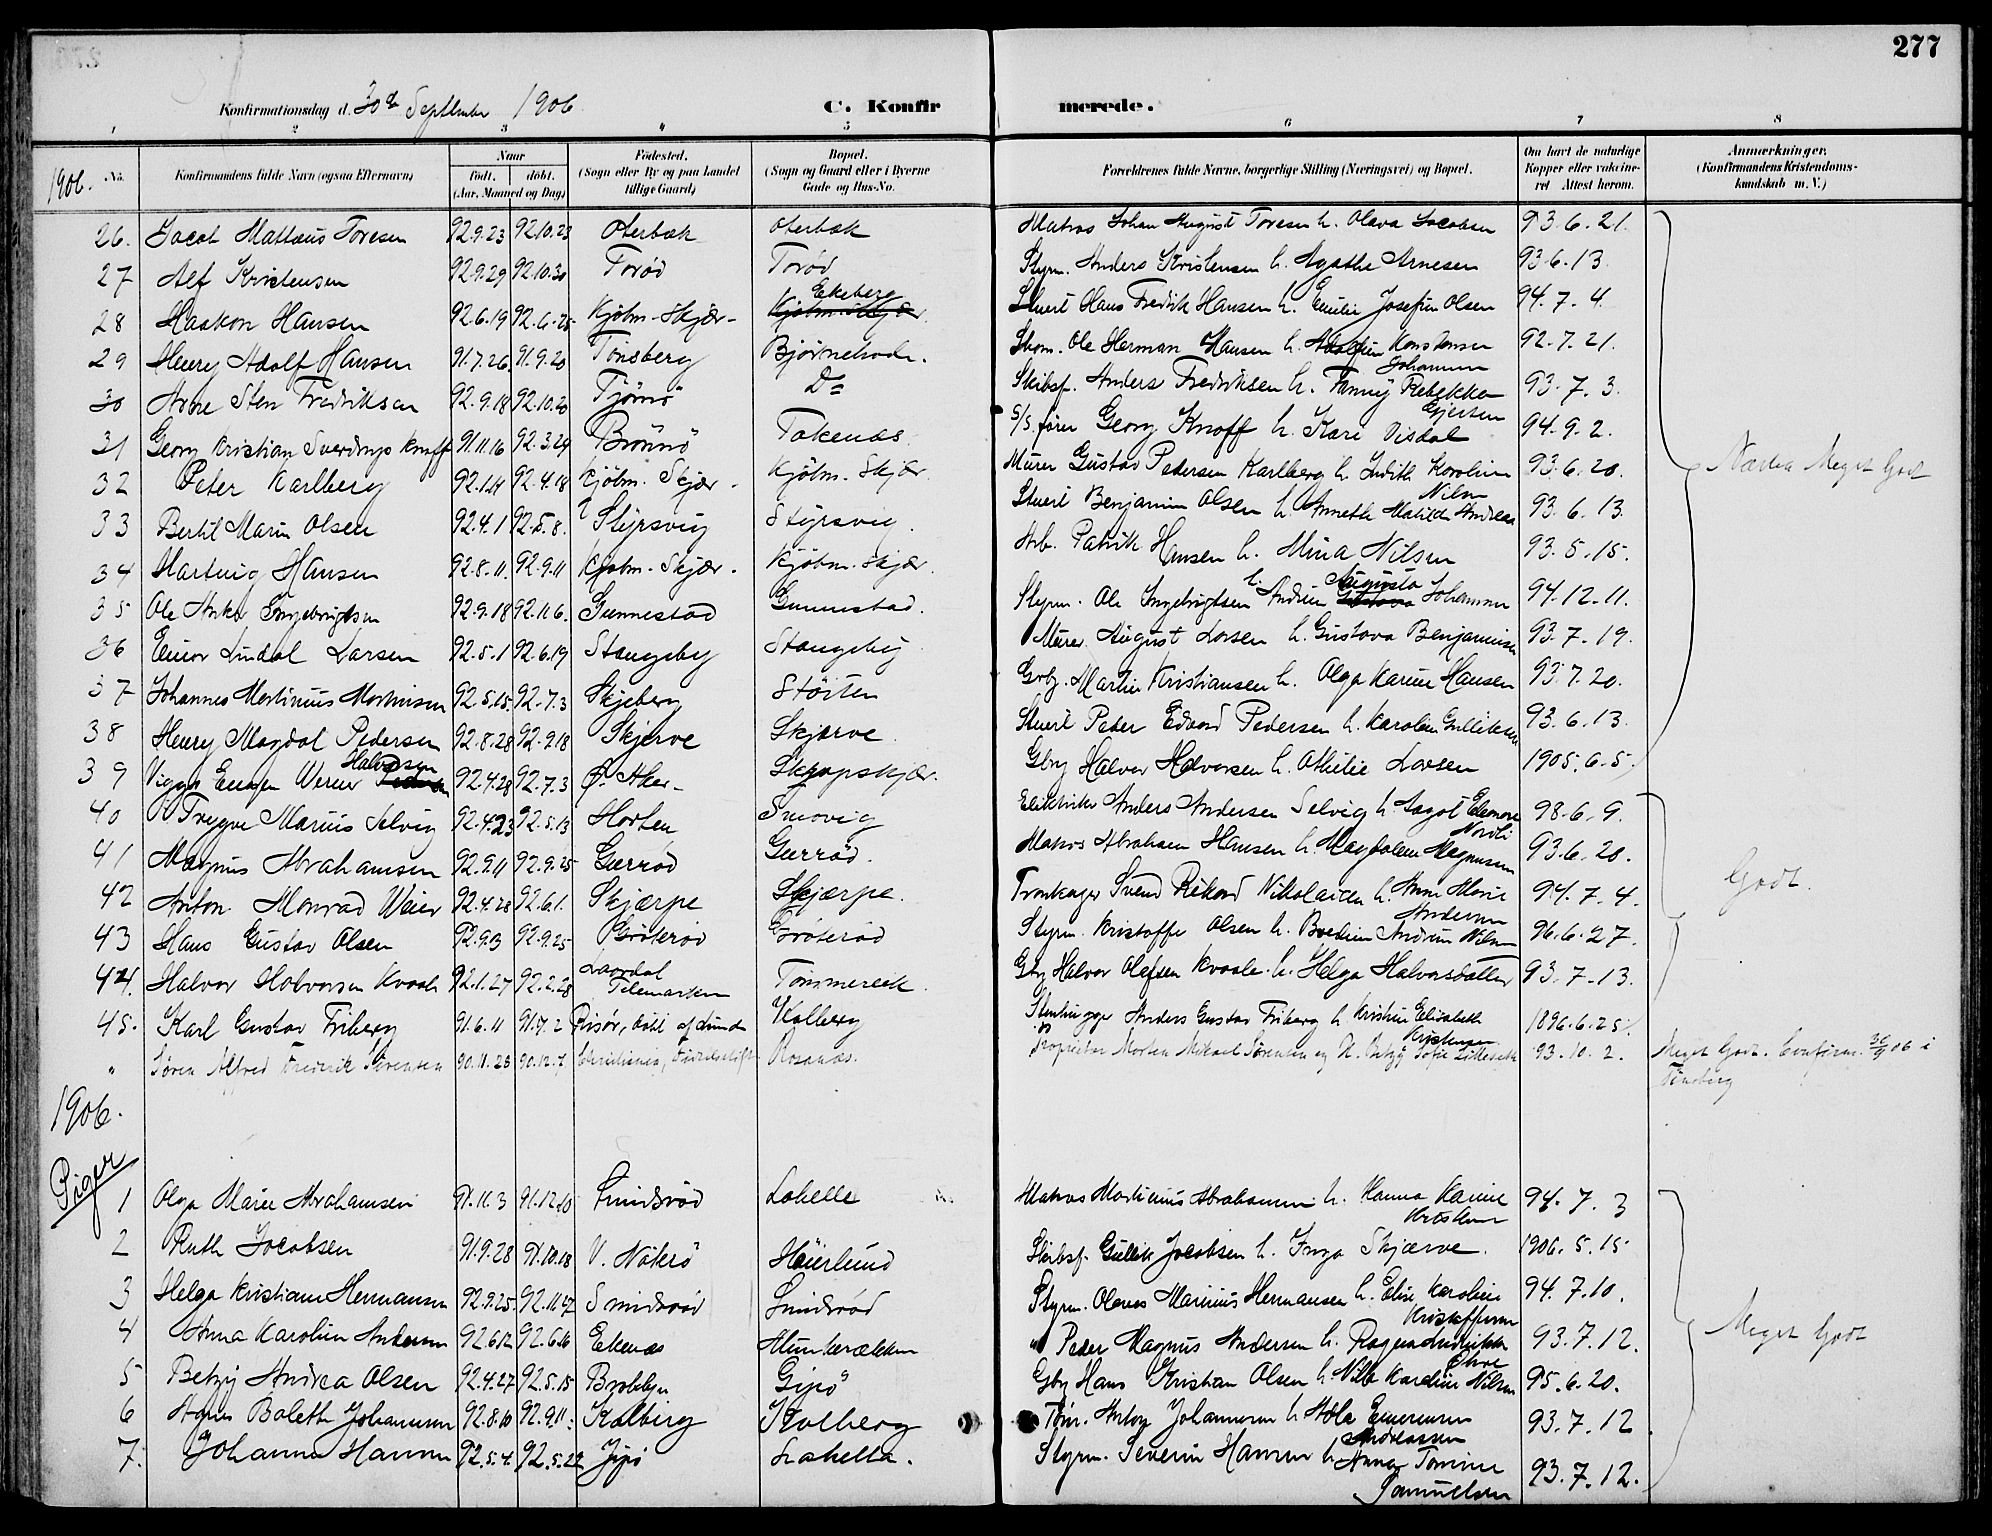 277
Konfirmationsdag d. 30te September 1906
C. Konfirmerede.
1 2 3 4 5 6 7 8
1906. No.
Konfirmandens fulde Navn (ogsaa Efternavn)
Naar født. døbt. (Aar, Maaned og Dag)
Fødested. (Sogn eller By og paa Landet tillige Gaard)
Bopæl. (Sogn og Gaard eller i Byerne Gade og Hus-No.
Forældrenes fulde Navne, borgerlige Stilling (Næringsvei) og Bopæl.
Om havt de naturlige Kopper eller vaccineret Attest herom.
Anmærkninger. (Konfirmandens Kristendomskundskab m. V.)
26. Jacob Mattæus Toresen 92.9.23 92.10.23 Oterbæk Oterbæk Matros Johan August Toresen h. Olava Jacobsen 93.6.21.
27 Alf Kristensen 92.9.29 92.10.30 Torød Torød Styrm. Anders Kristensen h. Agathe Arnesen 93.6.13.
28 Haakon Hansen 92.6.19 92.6.25 Kjøbm.-Skjær- Ekeberg Kjøbm.-Skjær Stuert Hans Fredrik Hansen h. Emilie Josefine Olsen 94.7.4.
29 Henry Adolf Hansen 91.7.26. 91.9.20 Tønsberg Bjørnebodn. Skom. Ole Herman Hansen h. Adolfine Konstanse Johannsen 92.7.21.
30 Arne Sten Fredriksen 92.9.18 92.10.20 Tjømø Do Skibsf. Anders Fredriksen h. Fanny Rebekka Gjertsen 93.7.3.
31 Georg Kristian Sverdrup Knoff 91.11.16 92.3.24 Brönnö Tokenæs S/S fører Georg Knoff h. Kare Visdal 94.9.2.
32 Peter Karlberg 92.1.4 92.4.18 Kjøbm. Skjær. Kjøbm. Skjær. Murer Gustav Pedersen Karlberg h. Judith Karoline Nilsen 93.6.20.
33 Bertil Marin Olsen 92.4.1 92.5.8. Styrsvig Styrsvig. Stuert Benjamin Olsen h. Annette Matilde Andreas 93.6.13.
34 Hartvig Hansen 92.8.11. 92.9.11 Kjøbm.-Skjær. Kjøbm.-Skjær. Arb. Patrik Hansen h. Mina Nilsen 93.5.15.
35 Ole Anker Ingebrigtsen 92.9.18 92.11.6. Gunnestad Gunnestad. Styrm. Ole Ingebrigtsen h. Andrine Augusta Gustava Johannsen 94.12.11.
36 Einar Lindal Larsen 92.5.1 92.6.19 Stangeby Stangeby Murer August Larsen h. Gustava Benjaminsen 93.7.19.
37 Johannes Martinius Martinisen 92.5.15. 92.7.3 Skjeberg Støiten Grbg. Martin Kristiansen h. Olga Karine Hansen 93.7.20.
38 Henry Magdal Pedersen 92.8.28 92.9.18 Skjerve Skjærve. Stuert Peder Edvard Pedersen h. Karoline Gulliksen 93.6.13.
39 Viggo Eugen Werner Halvorsen 92.4.28 92.7.3 Ø. Aker- Skjropskjær. Gbrg Halvor Halvorsen h. Othilie Larsen 1905.6.5.
Næsten Meget Godt
40 Trygve Marius Selvig 92.4.23 92.5.13 Horten Smovig Elektriker Anders Andersen Selvig h. Aagot Elenore Nordli 98.6.9.
41 Magnus Abrahamsen 92.9.11 92.9.25 Gærrød Gærrød. Matros Abraham Hansen h. Magdalene Magnusen 93.6.20.
42 Anton Monrad Weier 92.4.28 92.6.1. Skjærpe Skjærpe. Trankoger Svend Rikard Nikolaisen h. Anne Marie Andersen 94.7.4.
43 Hans Gustav Olsen 92.9.3 92.9.25 Grøterød Grøterød Styrm. Kristoffer Olsen h. Bredine Andrine Nilsen 96.6.27.
44. Halvor Halvorsen Kvaale 92.1.27 92.2.28 Laardal Telemarken Tømmereik. Gbrg Halvor Olefsen Kvaale h. Helga Halvorsdatter 93.7.13.
45. Karl Gustav Friberg 91.6.11 91.7.2 Risør, døbt af Lunde Kolberg Stenhugger Anders Gustav Friberg h. Kristine Elisabeth Kristensen 1896.6.25.
Godt.
" Søren Alfred Frederik Sørensen 90.11.28 90.12.7 Christiania, Fødselsstift Rosanæs. Proprietær Morten Mikael Sørensen og H. Betzy Sofie Lillebæk 93.10.2. Meget Godt. Confirm. 30/9 06 i Tønsberg
1906.
Piger
1 Olga Marie Abrahamsen 91.11.3 91.12.10 Smidsrød Labella Matros Martinius Abrahamsen h. Hanna Karine Kristiansen 94.7.3
2 Ruth Jacobsen 91.9.28 91.10.18 V. Nöterö Høierlund Skibsf. Gullik Jacobsen h. Inga Skjærve. 1906.5.15
3 Helga Kristiane Hermansen 92.9.25. 92.11.27 Smidsrød Smidsrød Styrm. Olaves Marinius Hermansen h. Eline Karoline Kristoffersen 94.7.10.
4 Anna Karoline Andersen 92.6.12 92.6.26 Ekenæs Munkerækken " Peder Magnus Andersen h. Ragna Fredrikke Ohre 93.7.12.
5 Betzy Andrea Olsen 92.4.27 92.5.15 Brobbegn Gipö Gbrg Hans Kristian Olsen h. Nilla Karoline Nilsen 95.6.20.
6 Agnes Bolette Johannsen 92.8.10 92.9.11. Kolberg Kolberg Tøm. Anton Johannesen h. Alda Emerensen Andreassen 93.7.12
7. Johanna Hansen 92.5.4. 92.5.22 Gipö Labella. Styrm. Severin Hansen h. Anna Tomine Samuelsen 93.7.12.
Meget Godt